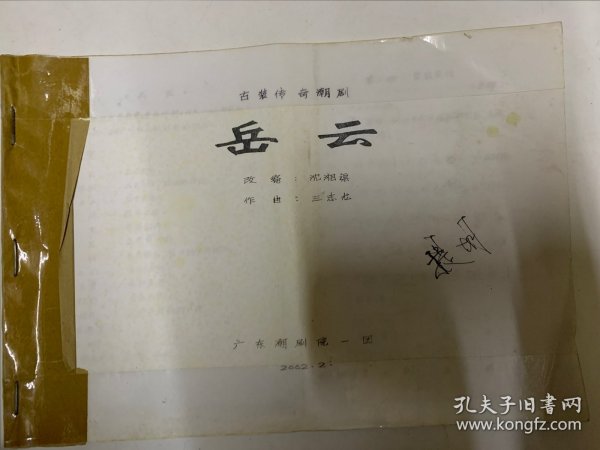 古装传奇潮剧
岳云
改编：沈湘渠
作曲：王志龙
广东潮剧院一团
2002.2.
孔夫子旧書网
www.kongfz.com